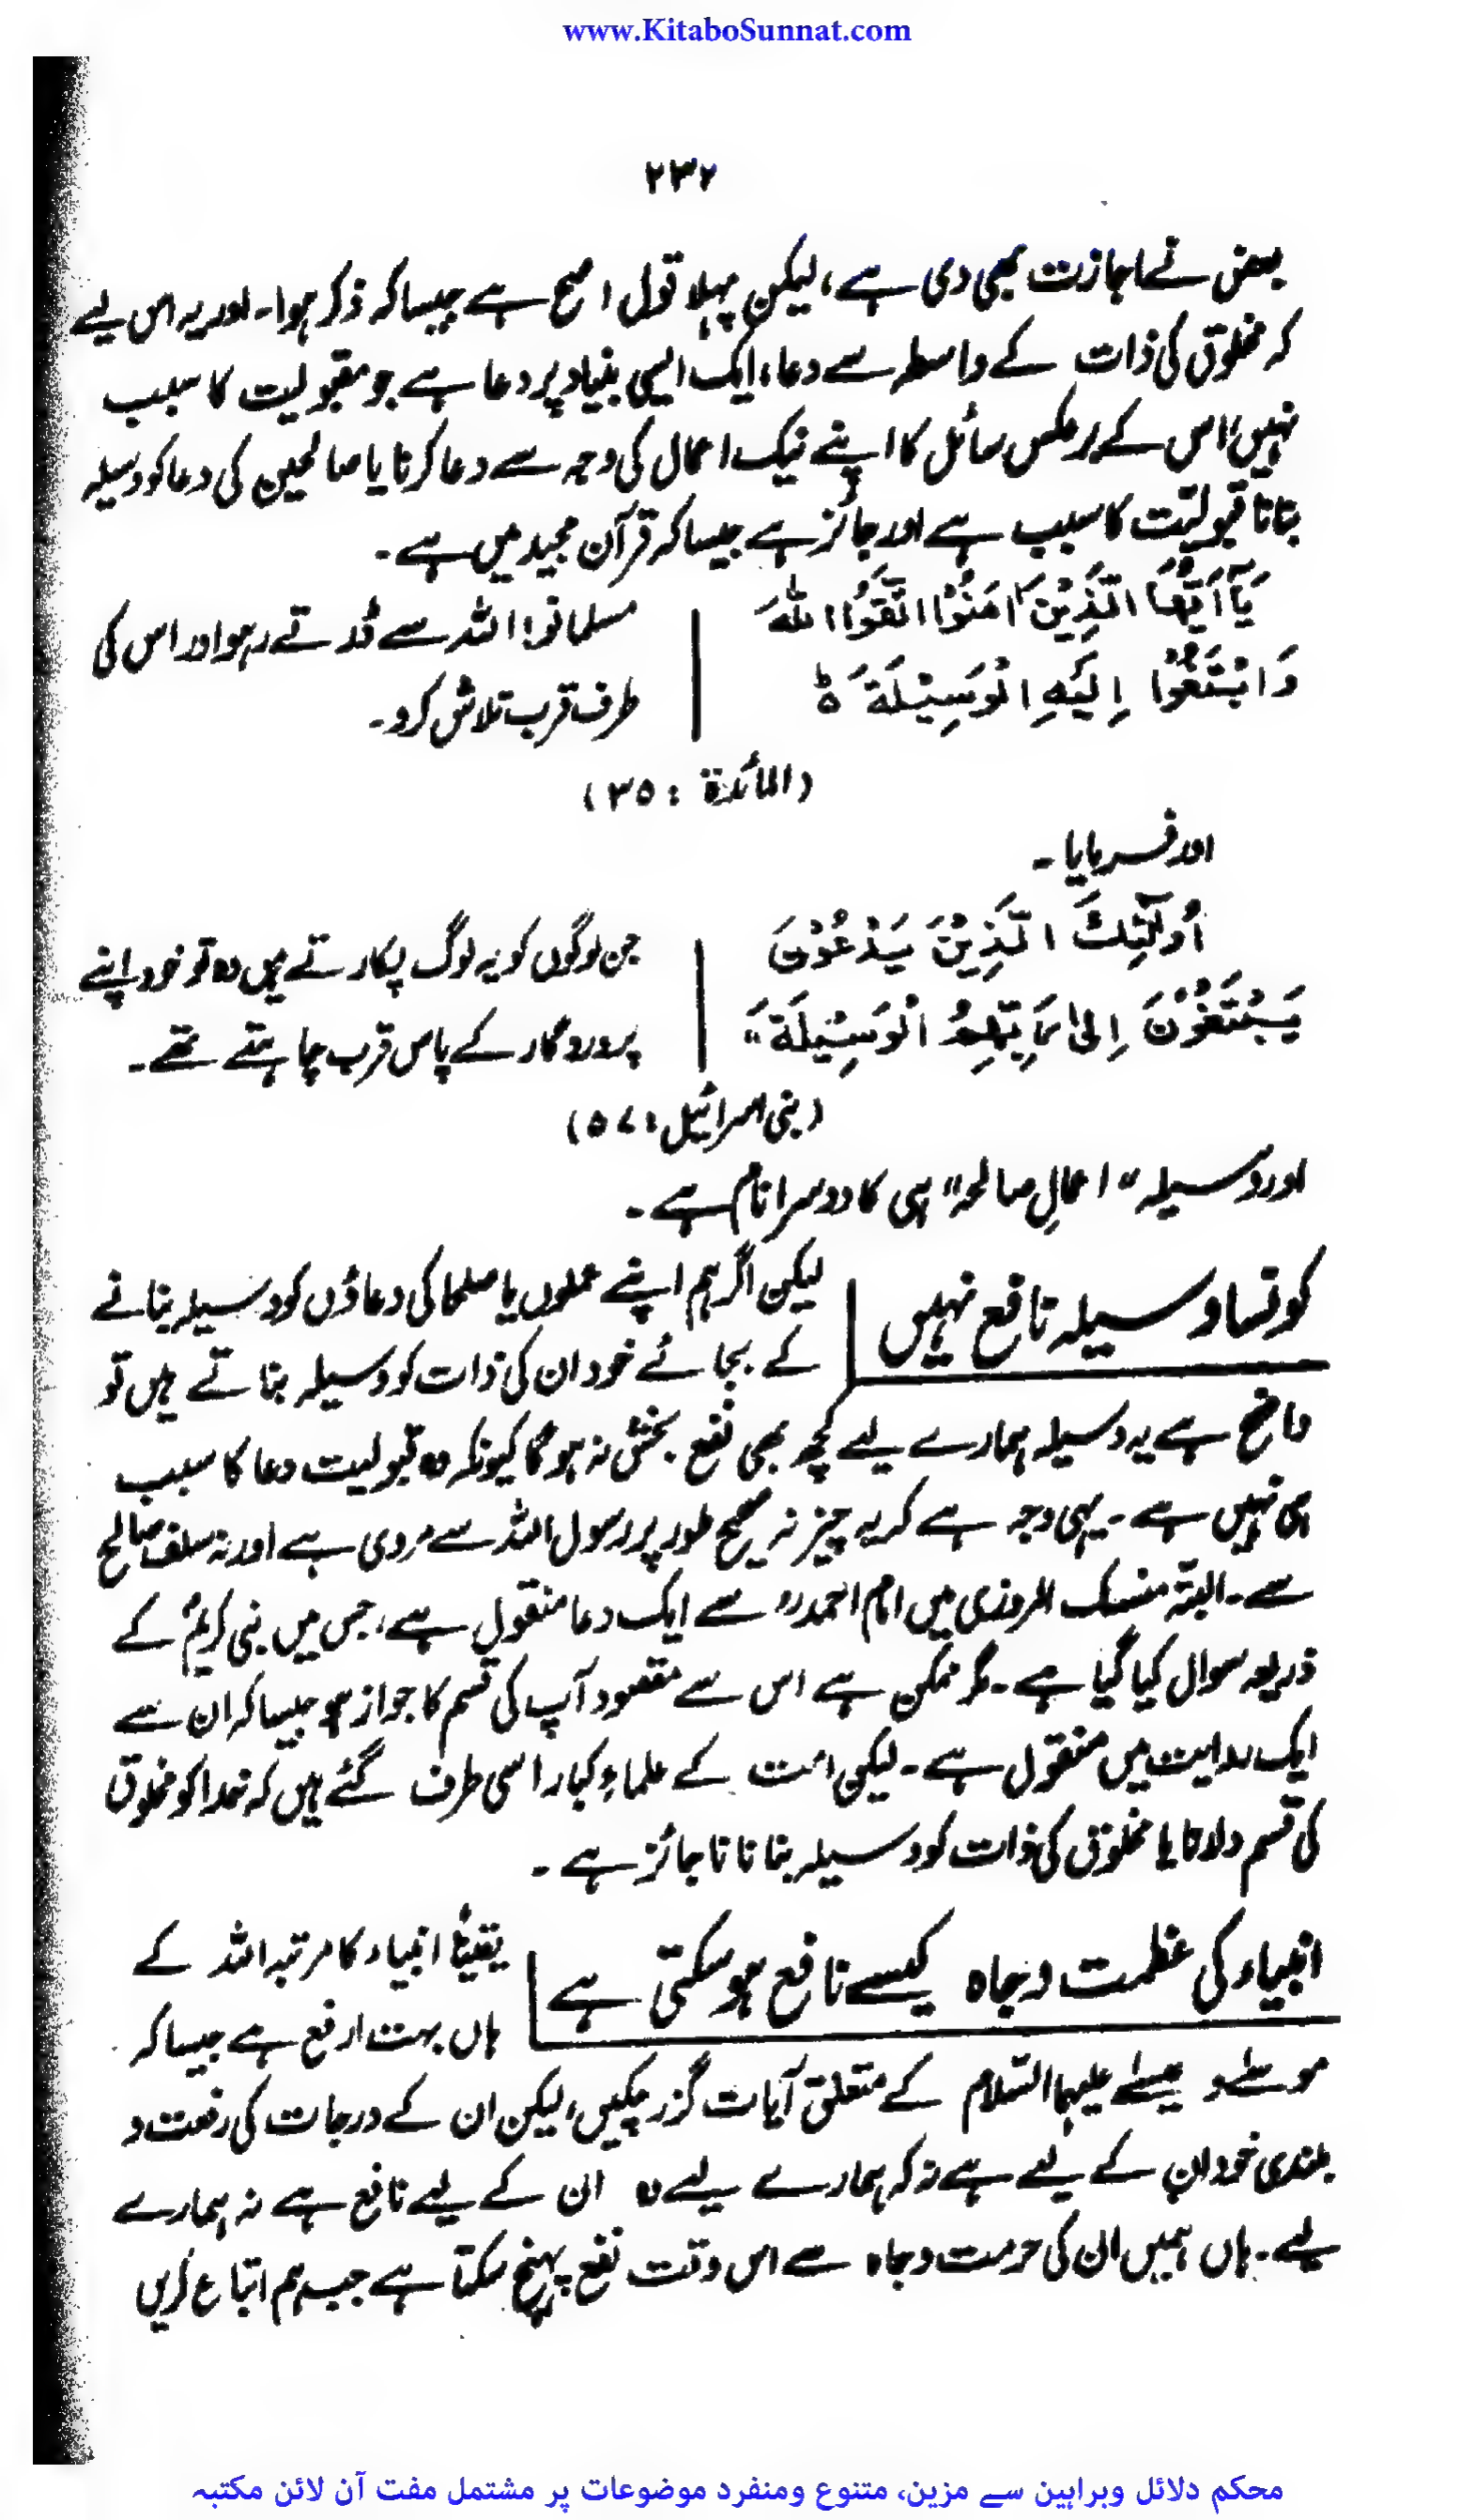 www.KitaboSunnat.com
۲۳۲
بعض نے اجازت بھی دی ہے، لیکن پہلا قول اصح ہے جیسا کہ ذکر ہوا۔ اور یہ اس لیے
کہ مخلوق کی ذات کے واسطہ سے دعا، ایک ایسی بنیاد پر دعا ہے جو مقبولیت کا سبب
نہیں، اس کے برعکس سائل کا اپنے نیک اعمال کی وجہ سے دعا کرنا یا صالحین کی دعا کو وسیلہ
بنانا قبولیت کا سبب ہے اور جائز ہے جیسا کہ قرآن مجید میں ہے۔
يَآ اَيُّهَا الَّذِيْنَ اٰمَنُوْا اتَّقُوا اللهَ
وَابْتَغُوْا اِلَيْهِ الْوَسِيْلَةَ ط
مسلمانو! اللہ سے ڈرتے رہو اور اس کی
طرف قرب تلاش کرو۔
(المائدة : ۳۵)
اور فرمایا۔
اُولٰٓئِكَ الَّذِيْنَ يَدْعُوْنَ
يَبْتَغُوْنَ اِلٰى رَبِّهِمُ الْوَسِيْلَةَ"
جن لوگوں کو یہ لوگ پکارتے ہیں وہ تو خود اپنے
پروردگار کے پاس قرب چاہتے تھے۔
(بنی اسرائیل: ۵۷)
اور وسیلہ "اعمالِ صالحہ" ہی کا دوسرا نام ہے۔
کونسا وسیلہ نافع نہیں
لیکن اگر ہم اپنے عملوں یا صلحا کی دعاؤں کو وسیلہ بنانے
کے بجائے خود ان کی ذات کو وسیلہ بناتے ہیں تو
واضح ہے یہ وسیلہ ہمارے لیے کچھ بھی نفع بخش نہ ہو گا کیونکہ وہ قبولیت دعا کا سبب
ہی نہیں ہے۔ یہی وجہ ہے کہ یہ چیز نہ صحیح طور پر رسول اللہ سے مروی ہے اور نہ سلف صالح
سے۔ البتہ منسک المروزی میں امام احمدؒ سے ایک دعا منقول ہے، جس میں نبی کریمؐ کے
ذریعہ سوال کیا گیا ہے۔ مگر ممکن ہے اس سے مقصود آپ کی قسم کا جواز ہو جیسا کہ ان سے
ایک روایت میں منقول ہے۔ لیکن امت کے علماء کبار اسی طرف گئے ہیں کہ خدا کو مخلوق
کی قسم دلانا یا مخلوق کی ذات کو وسیلہ بنانا ناجائز ہے۔
انبیاء کی عظمت و جاہ کیسے نافع ہو سکتی ہے
یقیناً انبیاء کا مرتبہ اللہ کے
ہاں بہت ارفع ہے جیسا کہ
موسےٰ و عیسےٰ علیہما السلام کے متعلق آیات گزر چکیں، لیکن ان کے درجات کی رفعت و
بلندی خود ان کے لیے ہے نہ کہ ہمارے لیے وہ ان کے لیے نافع ہے نہ ہمارے
لیے۔ ہاں ہمیں ان کی حرمت و جاہ سے اس وقت نفع پہنچ سکتا ہے جب ہم اتباع کریں
محکم دلائل وبراہین سے مزین، متنوع ومنفرد موضوعات پر مشتمل مفت آن لائن مکتبہ